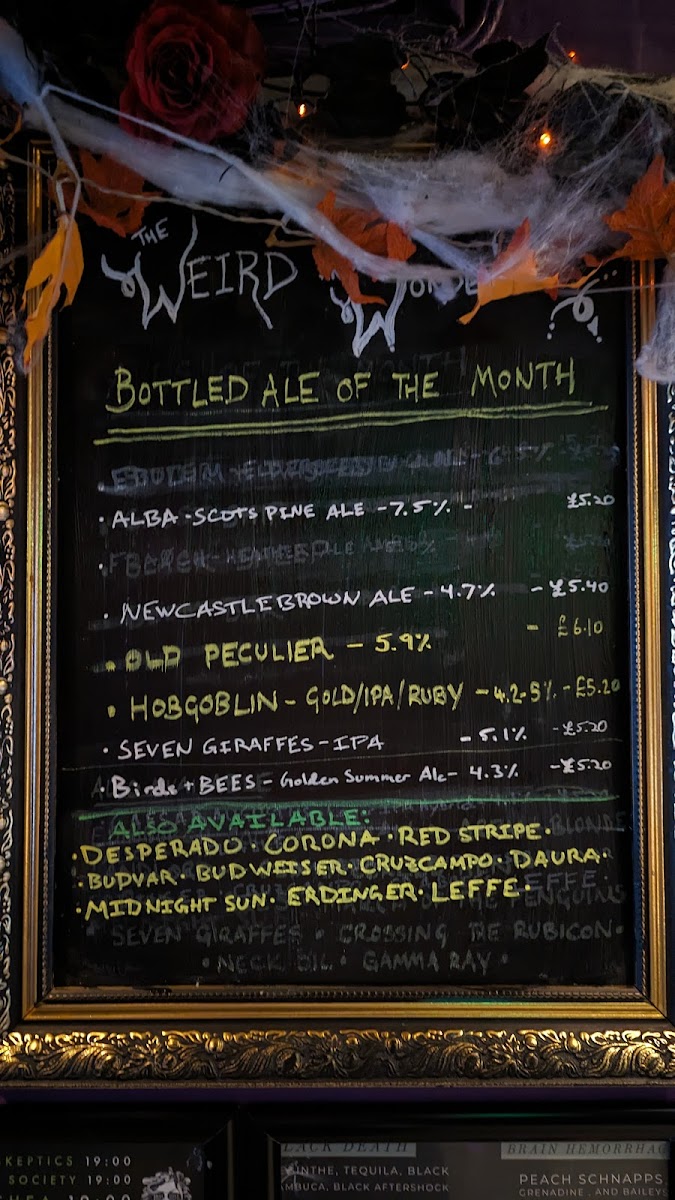 THE
WEIRD
BOTTLED ALE OF THE MONTH
· ALBA - SCOTS PINE ALE - 7.5% - £5.20
· NEWCASTLE BROWN ALE - 4.7% - £5.40
· OLD PECULIER - 5.9% - £6.10
· HOBGOBLIN - GOLD/IPA/RUBY - 4.2-5% - £5.20
· SEVEN GIRAFFES - IPA - 5.1% - £5.20
Birds + BEES - Golden Summer Ale - 4.3% - £5.20
ALSO AVAILABLE:
· DESPERADO · CORONA · RED STRIPE ·
· BUDVAR · BUDWEISER · CRUZCAMPO · DAURA ·
· MIDNIGHT SUN · ERDINGER · LEFFE ·
SEVEN GIRAFFES · CROSSING THE RUBICON ·
· NECK OIL · GAMMA RAY ·
SKEPTICS 19:00
SOCIETY 19:00
19:00
LACK DEATH
BRAIN HEMORRHAG
TEQUILA, BLACK
BLACK AFTERSHOCK
PEACH SCHNAPPS
GRENADINE, AND BAILEYS